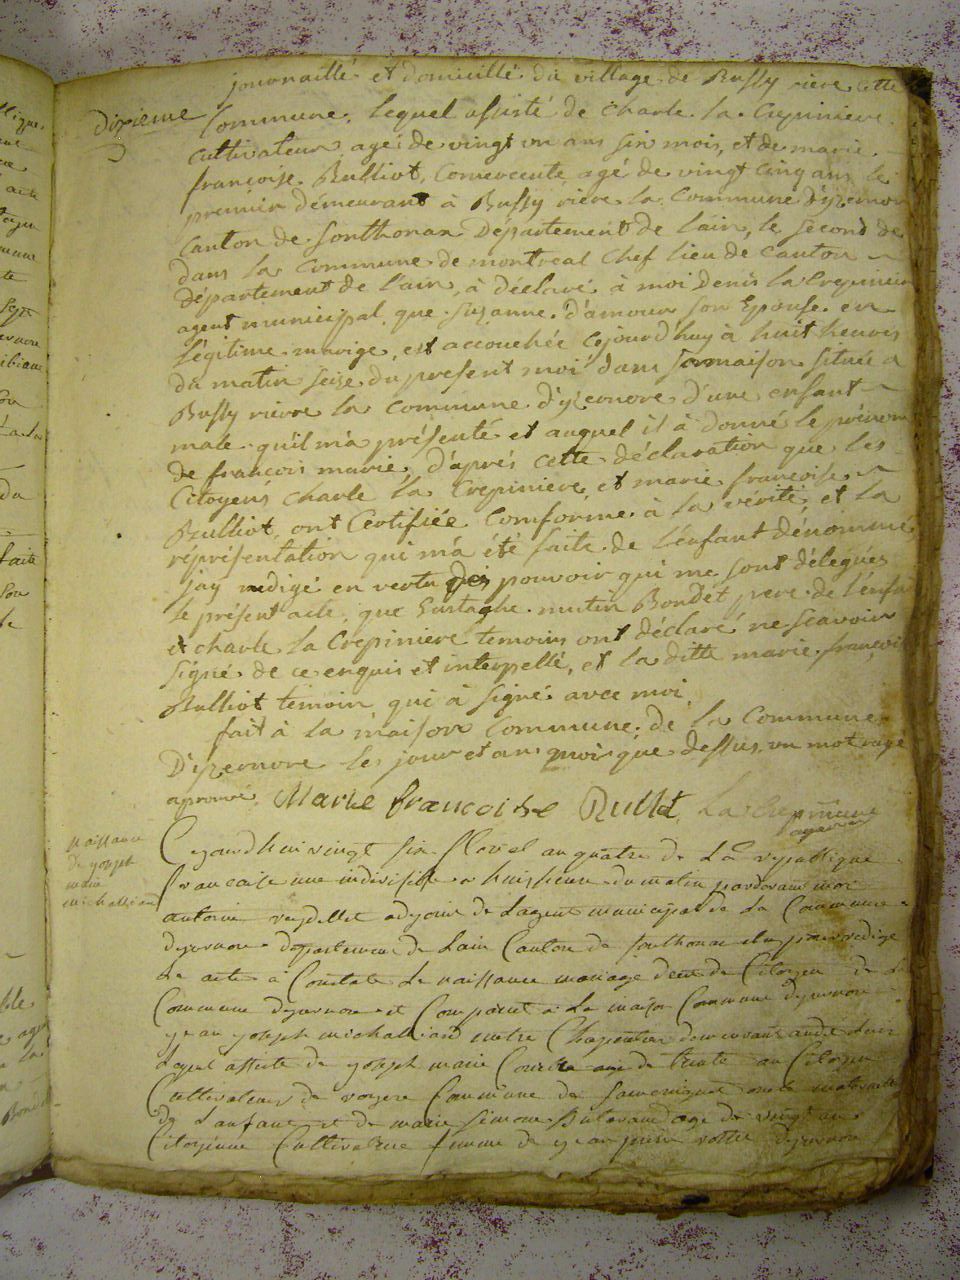 journaillé et domicillé du village de Bussy riere cette
Dixieme
Commune, lequel assisté de Charle la Crepiniere
Cultivateur agé de vingt un ans six mois, et de marie
françoise Bulliot, Comercente, agé de vingt cinq ans, le
premier demeurant à Bussy riere la Commune d'yzernor
Canton de Sonthonax Département de lain, le second de
dans la Commune de montreal Chef lieu de Canton
département de l'ain, à déclaré à moi Denis la Crepinier
agent municipal que Suzanne d'amour son Epouse en
légitime marige, est accouchée Cejourd'huy à huit heures
du matin seize du present moi dans sa maison située a
Bussy riere la Commune d'yzernore d'une enfant
male qu'il m'a présenté et auquel il à donné le prénom
de francois marie, d'aprés cette déclaration que les
Citoyens Charle la Crepiniere et marie françoise
Bulliot, ont Certifiée Comforme à la vérité, et la
réprésentation qui m'a été faite de l'enfant dénommé
jay redigé en vertu des pouvoir qui me sont délegués
le présent acte, que Eustache mutin Bondet pere de l'enfa
et charle la Crepiniere temoins ont déclaré ne scavoir
signé de ce enquis et interpellé, et la ditte marie françoi
Bulliot témoin qui à signé avec moi
fait à la maison Commune de la Commune
D'izernore les jour et an mois que dessus, un mot rayé
aprouvé Marie francoise Bulliot La Crepiniere
agent
Naissance
de yoseph
marie
michalliard
Cejourdhui vingt six floreal an quatre de La republique
francaise une indivisible a huis heure du matin pardevant moi
antoine reydellet adjoint de Lagent municipal de La Commune
dyzernore departement de Lain Canton de sonthonax elu pour redige
Le acte à Constate Le naissance mariage deces de Citoyen de La
Commune dyzernore et Comparut a La maison Commune dyzernore
yean yoseph michalliard metre Charpentier demeurant audit lieu
Lequel assiste de yoseph marie age de trente an Citoyen
Cultivateur de Commune de oncle maternelle
de Lanfant et de marie simone age de vingt un
Citoyenne Cultivatrice femme de yean pierre dyzernore